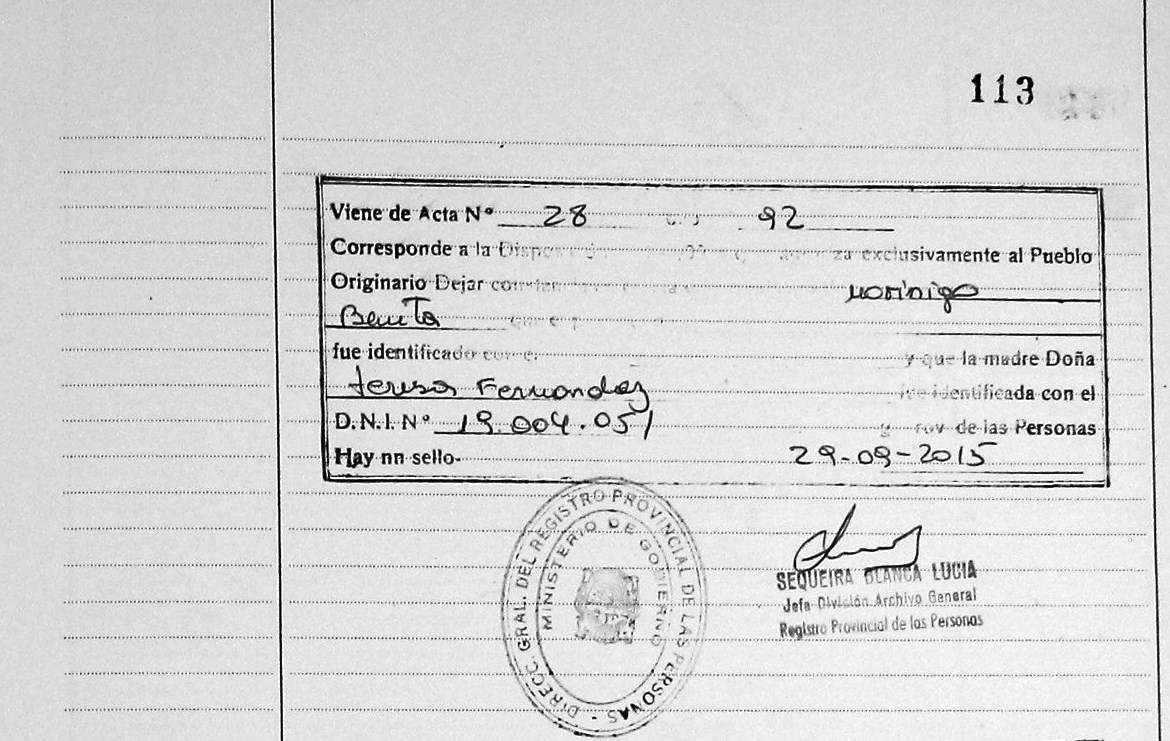 113
Viene de Acta Nº 28 92
Corresponde a la exclusivamente al Pueblo
Originario Dejar Morinigo
Benita
fue identificado y que la madre Doña
Teresa Fernandez identificada con el
D.N.I. Nº 19.004.051 de las Personas
Hay nn sello- 29-09-2015
DIRECC. GRAL. DEL REGISTRO PROVINCIAL DE LAS PERSONAS -
MINISTERIO DE GOBIERNO
SEQUEIRA BLANCA LUCIA
Jefa División Archivo General
Registro Provincial de las Personas